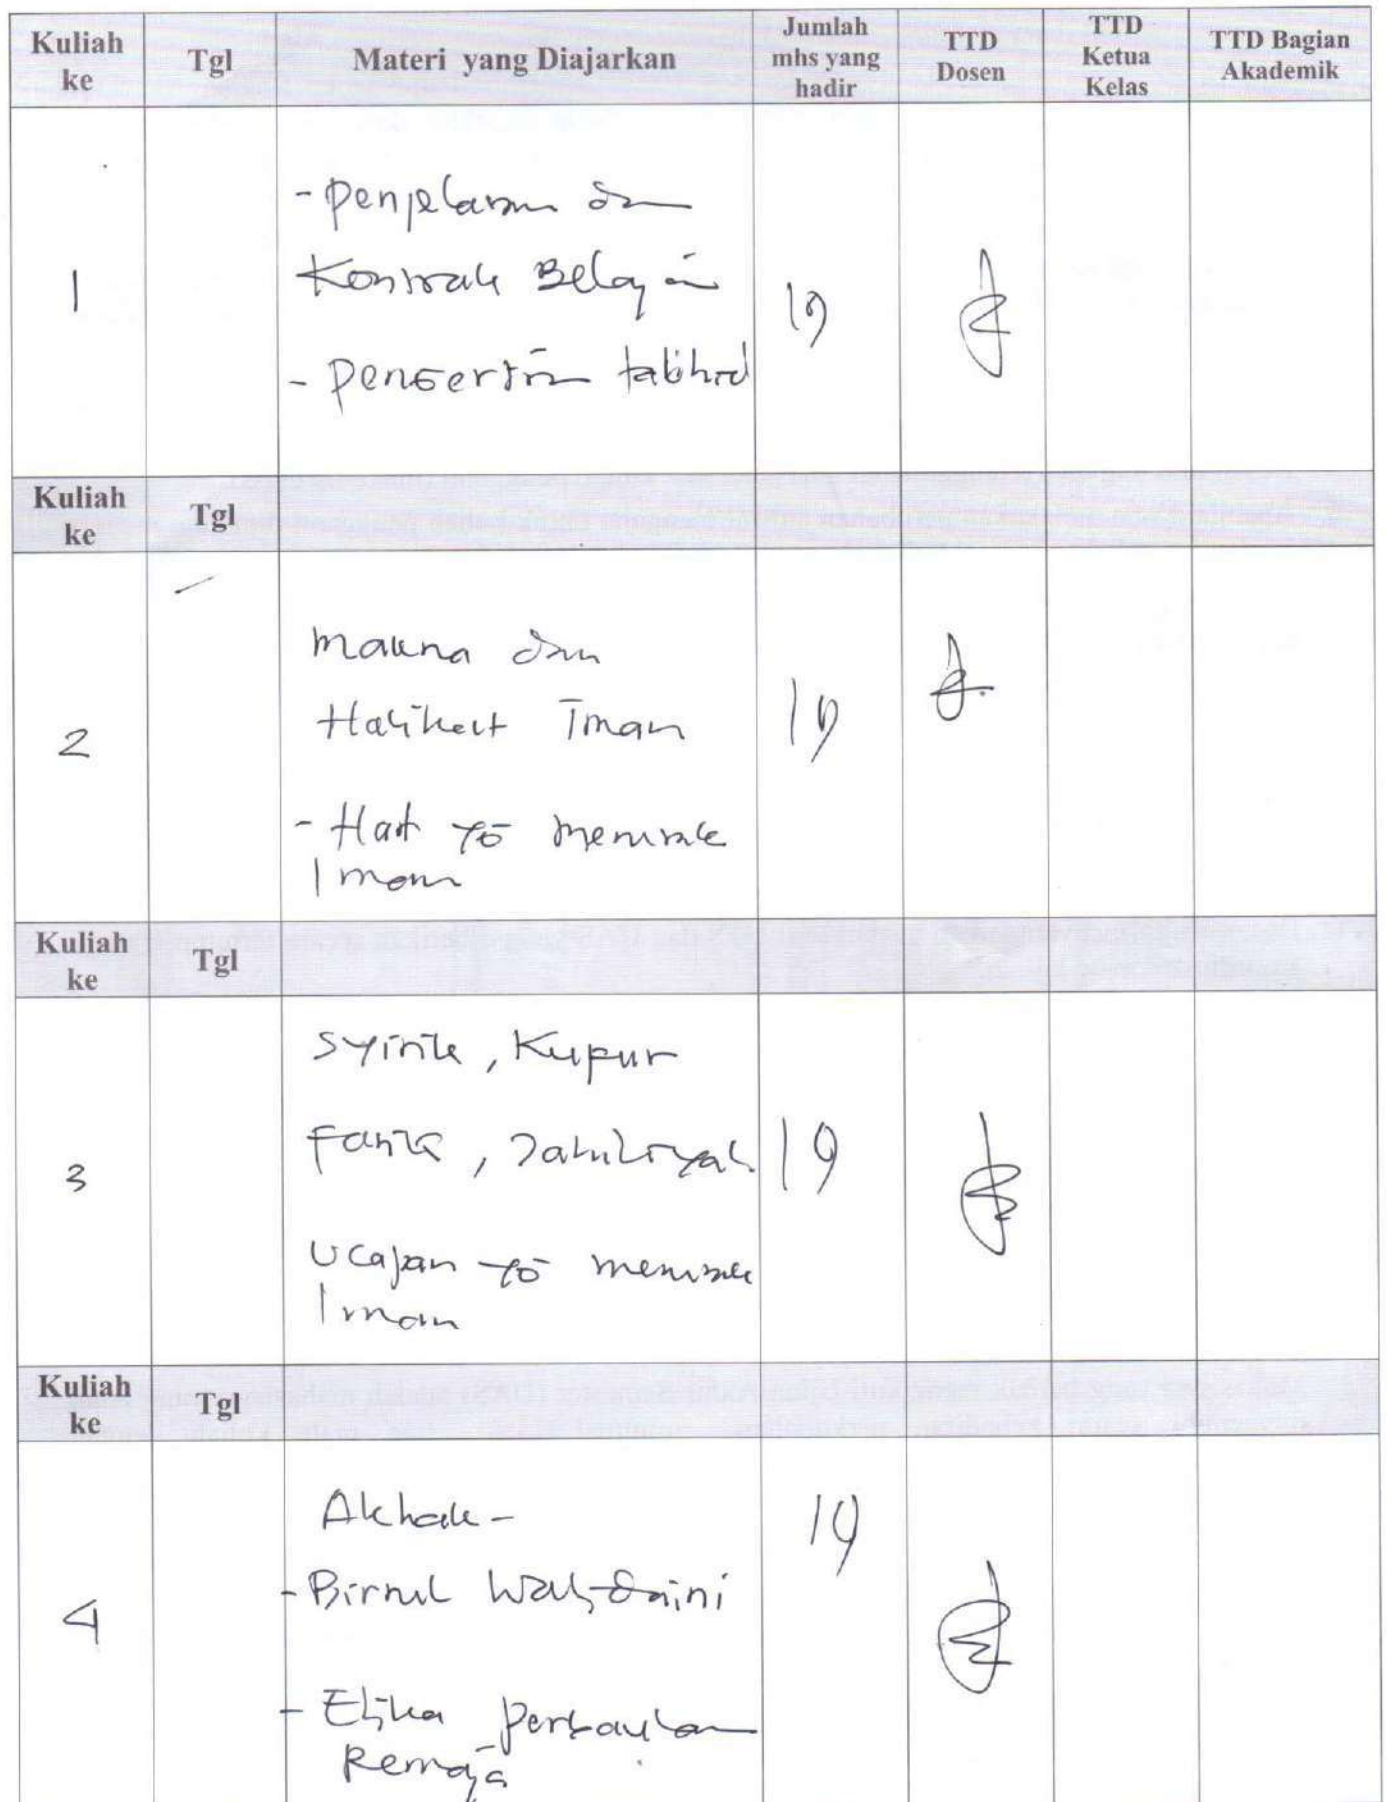 Kuliah ke Tgl Materi yang Diajarkan Jumlah mhs yang hadir TTD Dosen TTD Ketua Kelas TTD Bagian Akademik
- Penjelasan dan
1 Kontrak Belajar 19
- Pengertian tauhid
Kuliah ke Tgl
Makna dan
2 Hakikat Iman 19
- Hal yg merusak
Iman
Kuliah ke Tgl
Syirik, Kupur
3 Fasik, Jahiliyah 19
Ucapan yg merusak
Iman
Kuliah ke Tgl
Akhlak - 19
4 - Birrul Walidaini
- Etika Pergaulan
Remaja